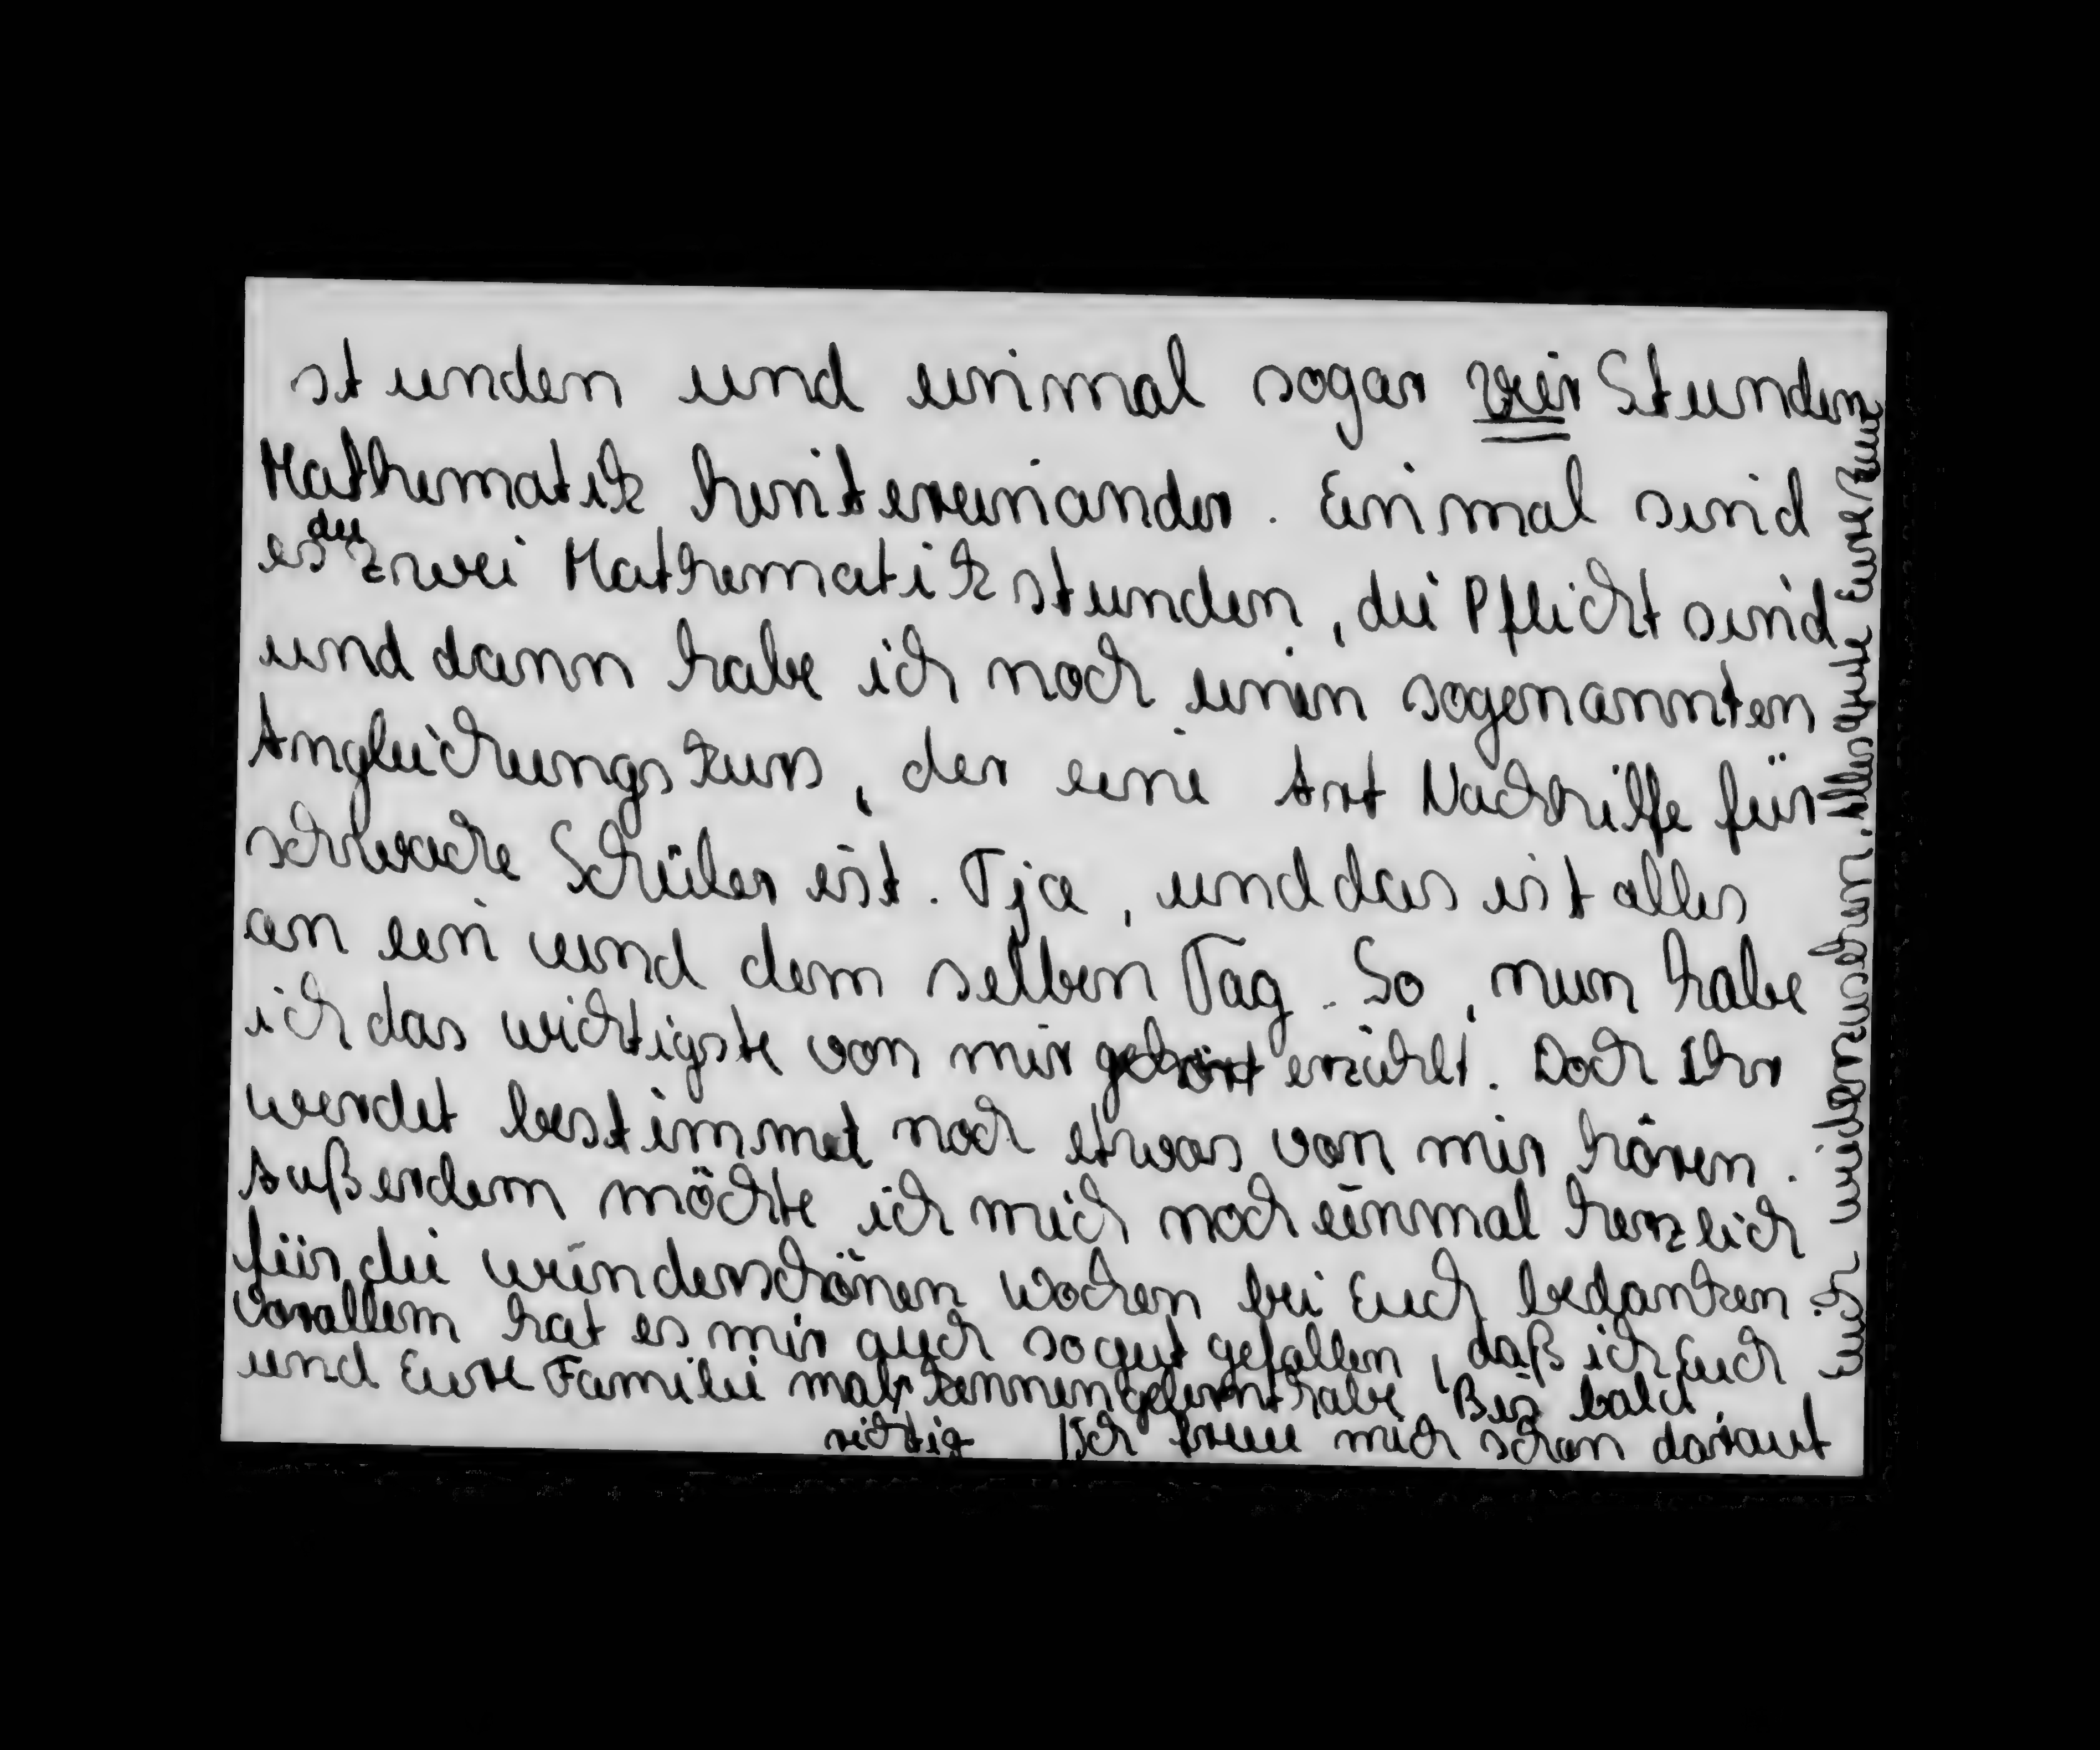 stunden und einmal sogar vier Stunden
Mathematik hintereinander. Einmal sind
es die zwei Mathematikstunden, die Pflicht sind
und dann habe ich noch einen sogenannten
Angleichungskurs, der eine Art Nachhilfe für
schwache Schüler ist. Tja, und das ist alles
an ein und dem selben Tag. So, nun habe
ich das wichtigste von mir gehört erzählt. Doch Ihr
werdet bestimmt noch etwas von mir hören.
Außerdem möchte ich mich noch einmal herzlich
für die wunderschönen Wochen bei Euch bedanken.
Vorallem hat es mir auch so gut gefallen, daß ich Euch
und Eure Familie mal kennengelernt habe. Bis bald.
richtig Ich freue mich schon darauf
Euch wiederzusehen. Alles gute Eure